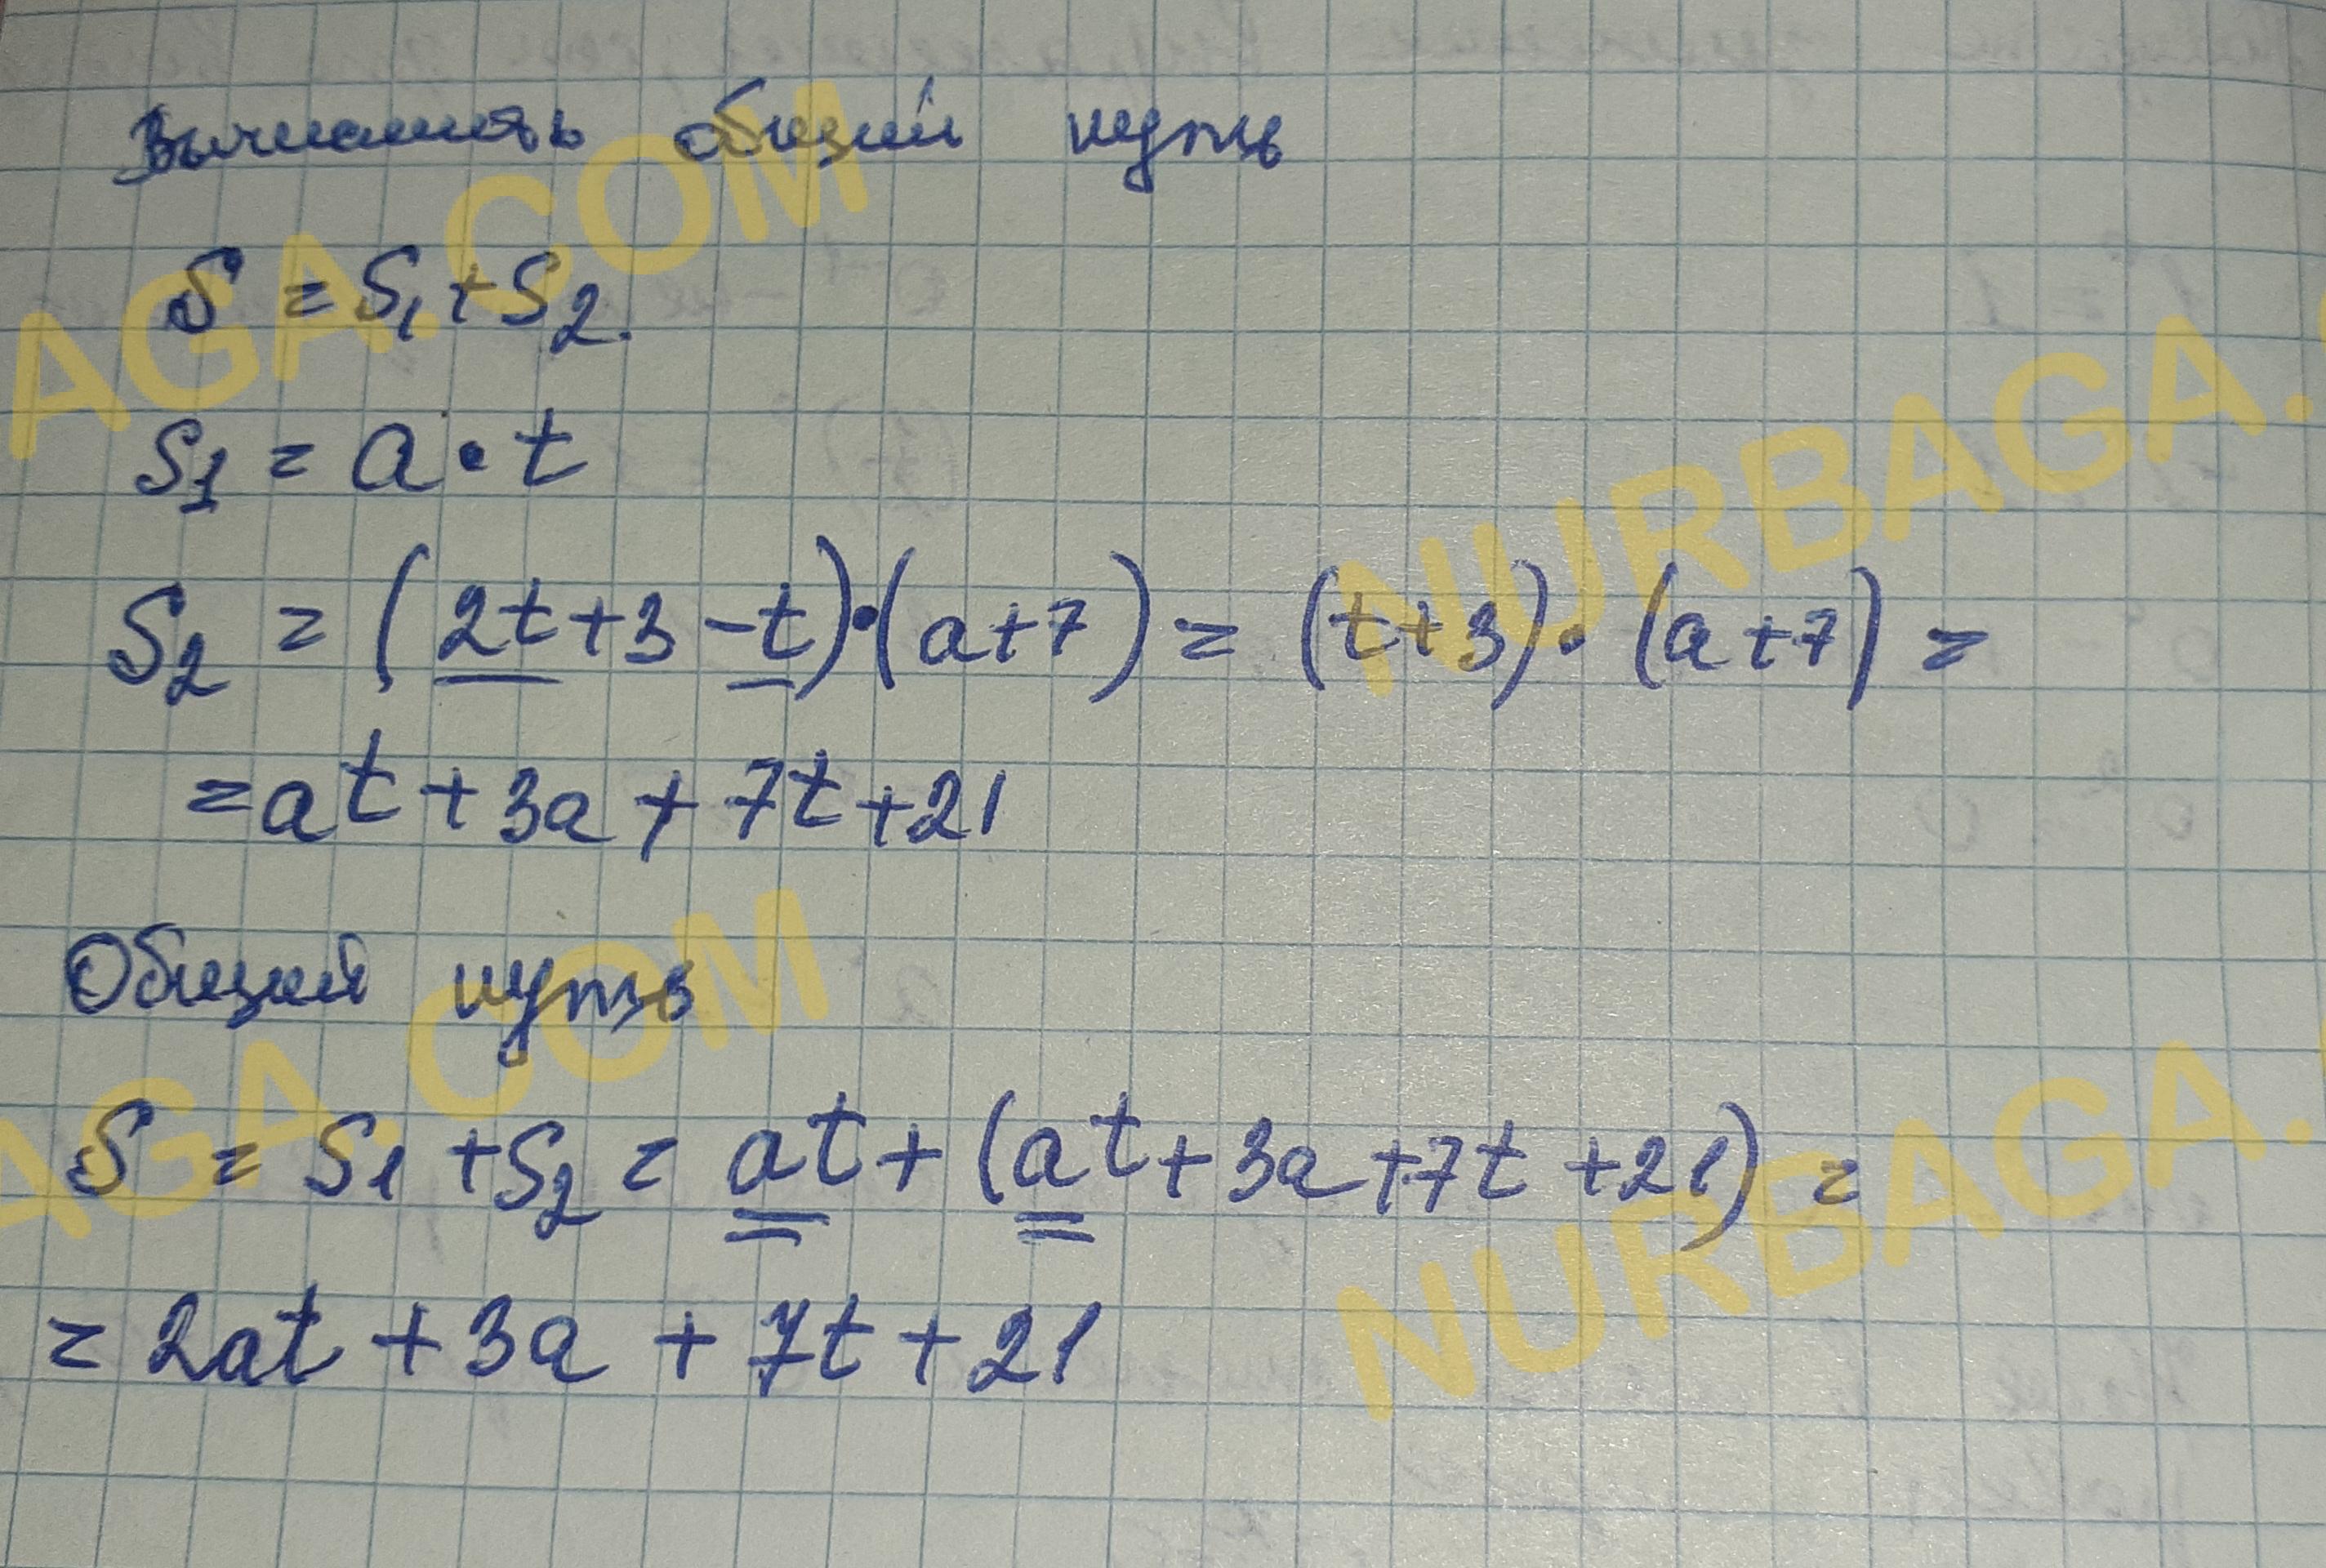 Вычислить общий путь
S = S₁ + S₂.
S₁ = a · t
S₂ = (2t + 3 - t) · (a + 7) = (t + 3) · (a + 7) =
= at + 3a + 7t + 21
Общий путь
S = S₁ + S₂ = at + (at + 3a + 7t + 21) =
= 2at + 3a + 7t + 21
AGA.COM
NURBAGA.
AGA.COM
NURBAGA.